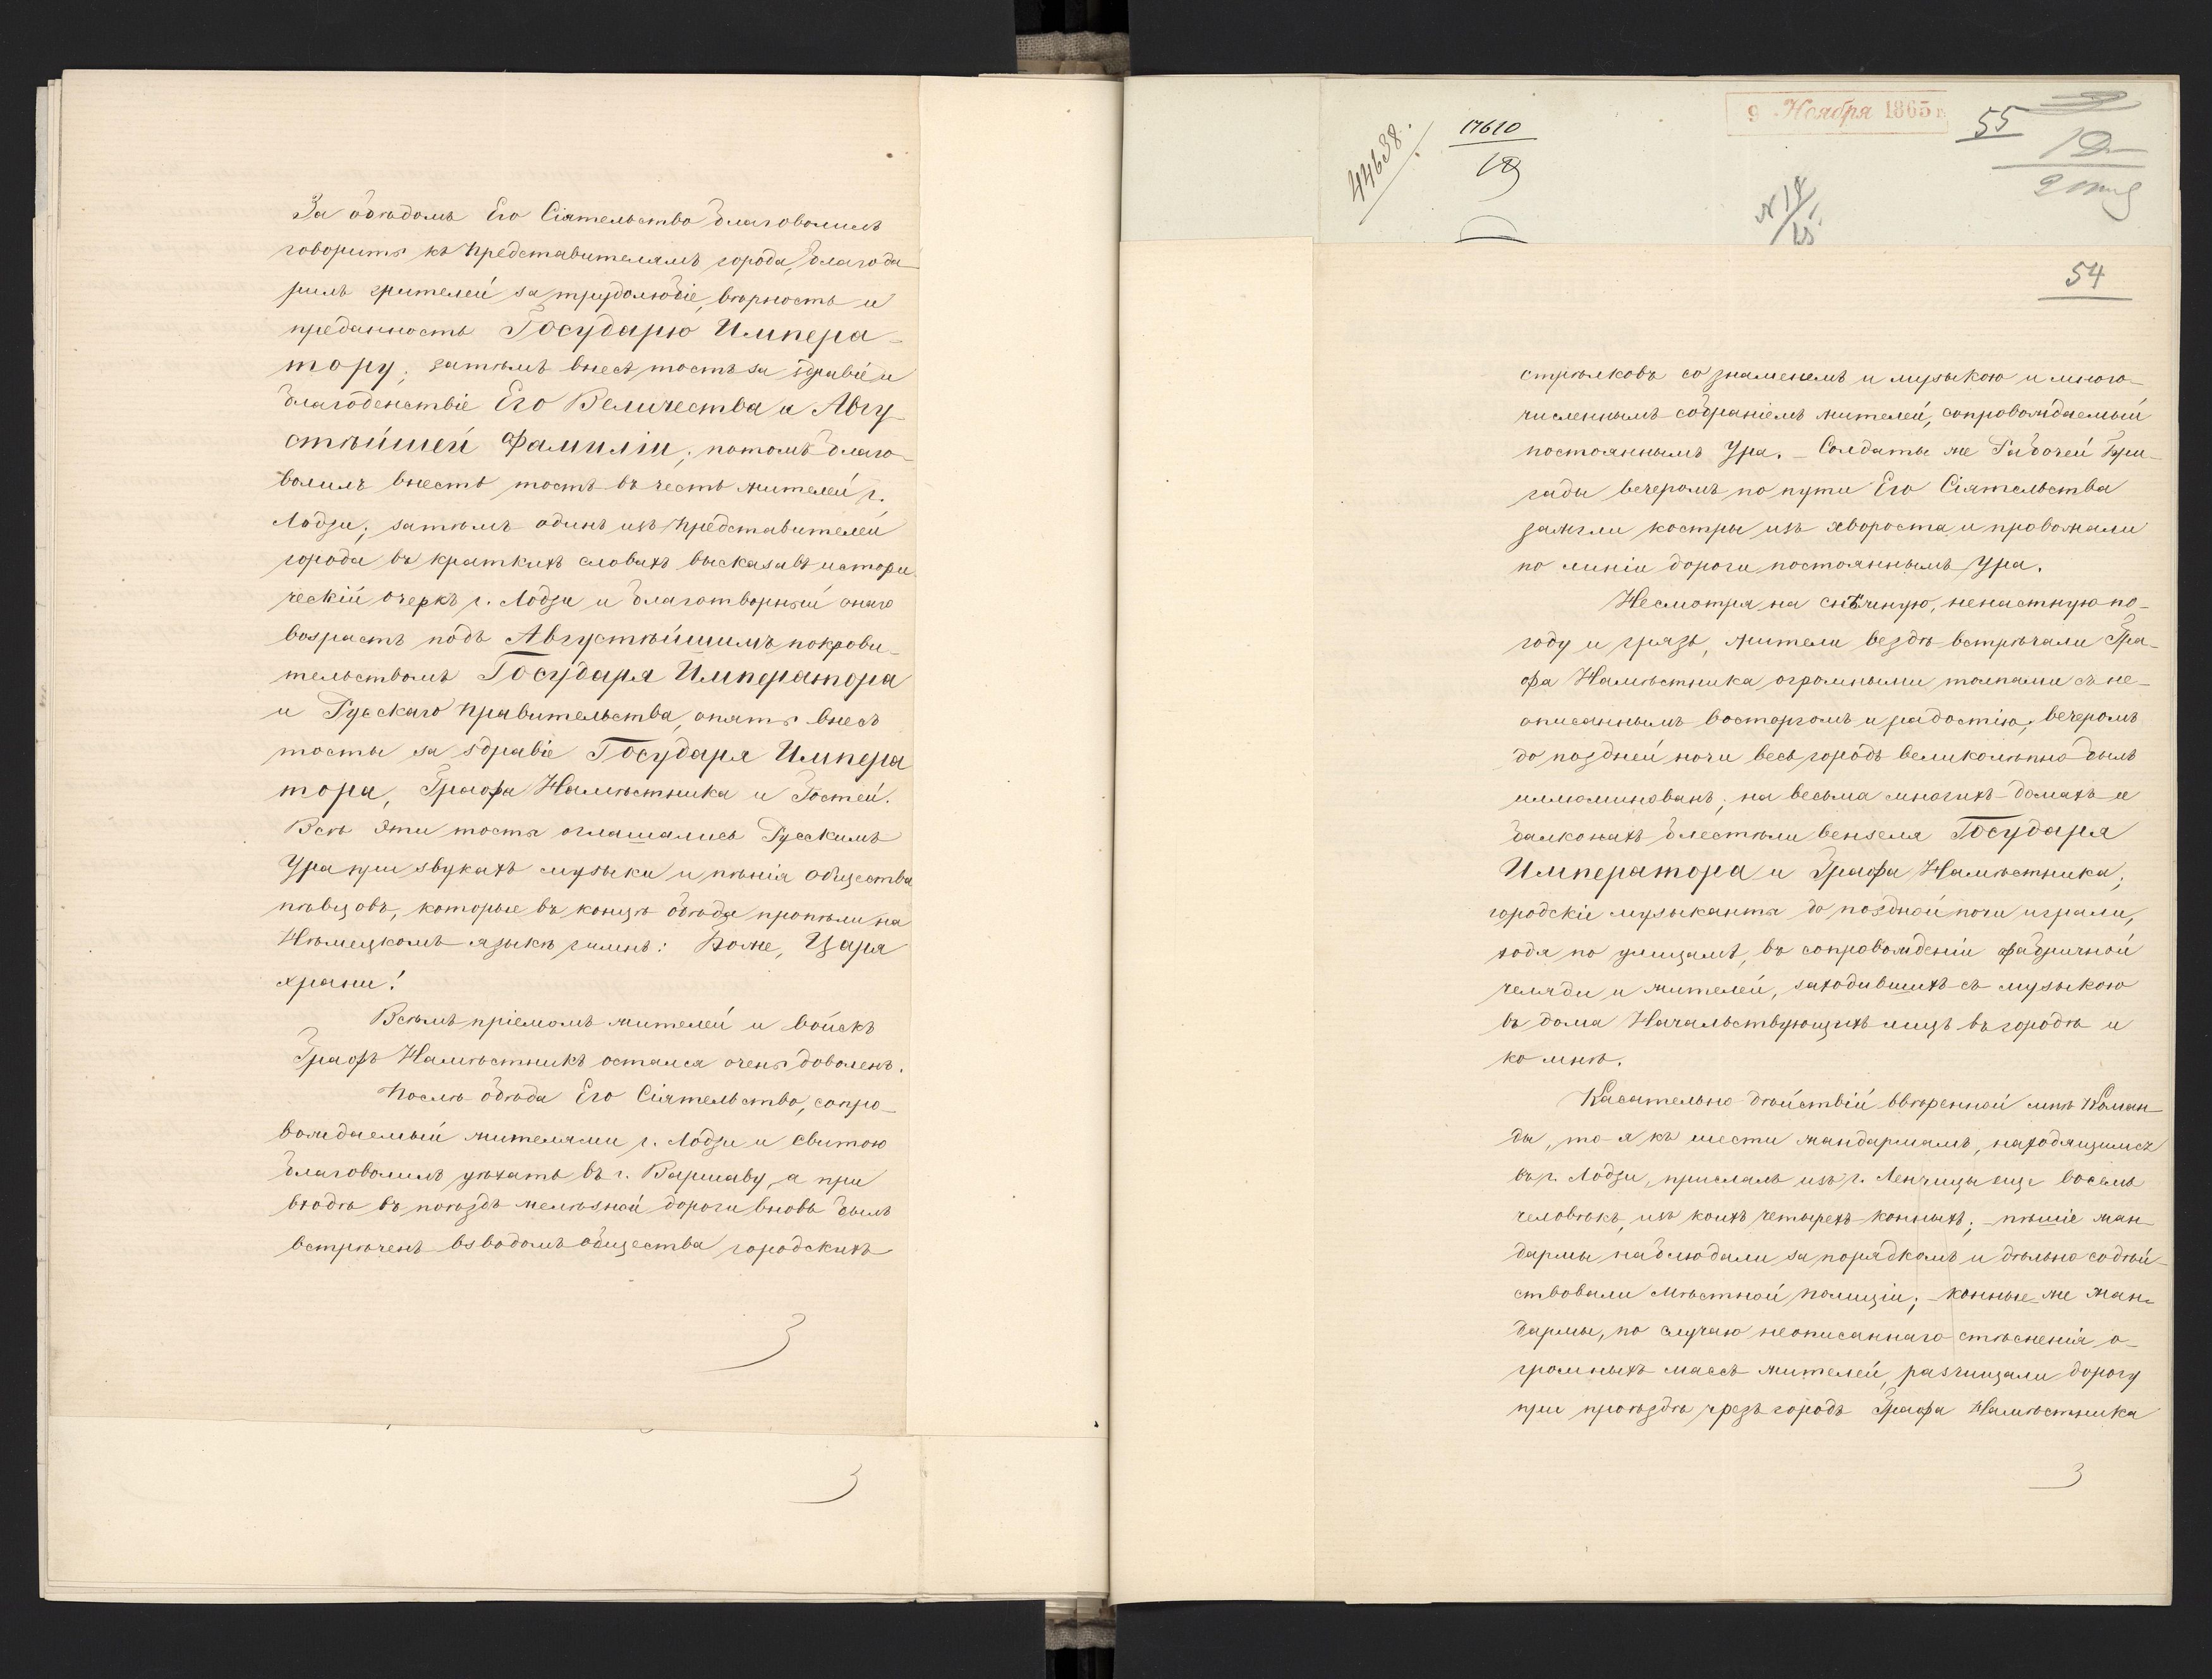 За обѣдомъ Его Сіятельство благоволилъ
говорить къ Представителямъ города, благода-
рилъ жителей за трудолюбіе, вѣрность и
преданность Государю Импера-
тору; затѣмъ внесъ тостъ за здравіе и
благоденствіе Его Величества и Авгу-
стѣйшей Фамиліи; потомъ благо-
волилъ внесть тостъ въ честь жителей г.
Лодзи; затѣмъ одинъ изъ Представителей
города въ краткихъ словахъ высказавъ истори-
ческій очеркъ г. Лодзи и благотворный онаго
возрастъ подъ Августѣйшимъ покрови-
тельствомъ Государя Императора
и Русскаго Правительства, опять внесъ
тосты за здравіе Государя Импера
тора, Графа Намѣстника и Гостей.
Всѣ эти тосты оглашались Русскимъ
Ура при звукахъ музыки и пѣнія общества
пѣвцовъ, которые въ концѣ обѣда пропѣли на
Нѣмецкомъ языкѣ гимнъ: Боже, Царя
храни!
Всѣмъ пріемомъ жителей и войскъ
Графъ Намѣстникъ остался очень доволенъ.
Послѣ обѣда Его Сіятельство, сопро-
вождаемый жителями г. Лодзи и Свитою
благоволилъ уѣхать въ г. Варшаву, а при
входѣ въ поѣздъ желѣзной дороги вновь былъ
встрѣченъ взводомъ общества городскихъ
9 Ноября 1865 г.
55
44638.
17610
54
стрѣлковъ со знаменемъ и музыкою и много-
численнымъ собраніемъ жителей, сопровождаемый
постояннымъ Ура. – Солдаты же Рабочей Бри-
гады вечеромъ по пути Его Сіятельства
зажгли костры изъ хвороста и провожали
по линіи дороги постояннымъ Ура.
Несмотря на снѣжную, ненастную по-
году и грязь, жители вездѣ встрѣчали Гра-
фа Намѣстника огромными толпами съ не-
описаннымъ восторгомъ и радостію, вечеромъ
до поздней ночи весь городъ великолѣпно былъ
иллюминованъ; на весьма многихъ домахъ и
балконахъ блестѣли вензеля Государя
Императора и Графа Намѣстника;
городскіе музыканты до поздной ночи играли,
ходя по улицамъ, въ сопровожденіи фабричной
челяди и жителей, заходившихъ съ музыкою
въ дома Начальствующихъ лицъ въ городѣ и
ко мнѣ.
Касательно дѣйствій ввѣренной мнѣ Коман-
ды, то я къ шести жандармамъ, находящимся
въ г. Лодзи, прислалъ изъ г. Ленчицы еще восемь
человѣкъ, изъ коихъ четырехъ конныхъ; – пѣшіе жан-
дармы наблюдали за порядкомъ и дѣльно содѣй-
ствовали мѣстной полиціи; – конные же жан-
дармы, по случаю неописаннаго стѣсненія о-
громныхъ массъ жителей, разчищали дорогу
при проѣздѣ чрезъ городъ Графа Намѣстника